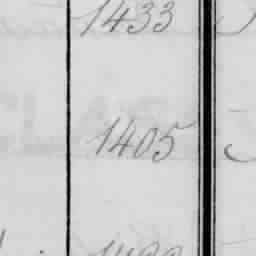 1433
1405